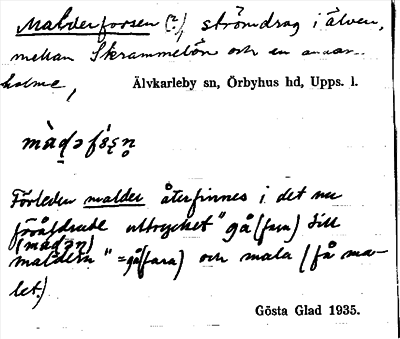 Malderforsen (?), strömdrag i älven,
mellan Skrammelön och en annan
holme,
Älvkarleby sn, Örbyhus hd, Upps. l.
Förleden malder återfinnes i det nu
föråldrade uttrycket "gå (fara) till
maldern" = gå (fara) och mala (få ma-
let.)
Gösta Glad 1935.